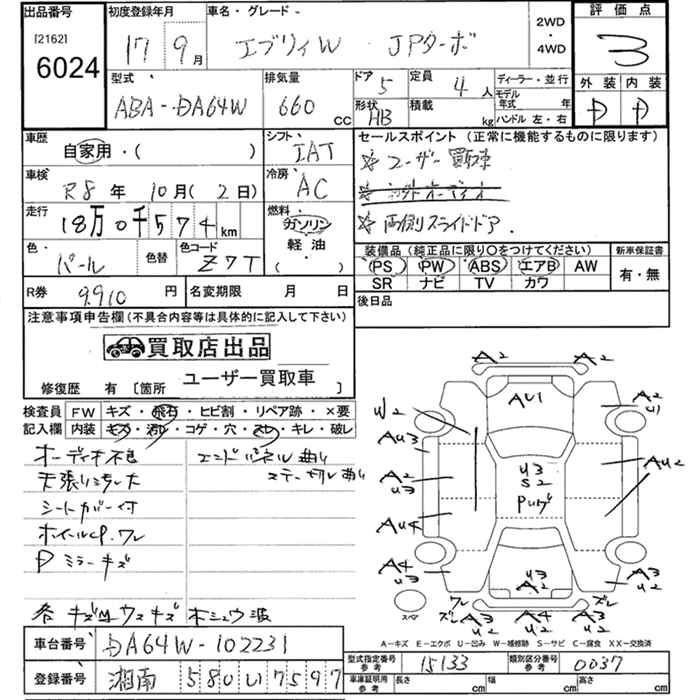 出品番号
[2162]
6024
初度登録年月
17 9月
車名・グレード
エブリィW JPターボ
2WD
・
4WD
評価点
3
型式
ABA-DA64W
排気量
660 cc
ドア 5
定員 4人
形状 HB
積載 kg
ディーラー・並行
モデル年式 年
ハンドル 左・右
外装 内装
D D
車歴
自家用・( )
シフト
IAT
車検
R8年 10月(2日)
冷房
AC
走行
18万0千574km
燃料
ガソリン
軽油
( )
色
パール
色替
色コード
Z7T
R券
9910円
名変期限 月 日
セールスポイント(正常に機能するものに限ります)
※ユーザー買取車
※両側スライドドア
装備品(純正品に限り〇をつけてください)
新車保証書
PS PW ABS エアB AW
SR ナビ TV カワ
有・無
後日品
注意事項申告欄(不具合内容等は具体的に記入して下さい)
買取店出品
ユーザー買取車
修復歴 有[箇所 ]
検査員 FW キズ・飛石・ヒビ割・リペア跡・×要
記入欄 内装 キズ・汚レ・コゲ・穴・スレ・キレ・破レ
オーディオ不良
天張りシミ大
シートカバー付
ホイールCP.ワレ
Dミラーキズ
エンドパネル曲り
ステー切レ曲り
各キズ凹ウスキズ
A2 A2
AU1
A2
U1
W2
AU3
A2
U3
AU2
U3
S2
AU4
A4
U3
U3
A2
A3
U3
ワレ
ズレ
ズレ
A3
U2
A4
U2
A3
U2
スペア
A-キズ E-エクボ U-凹み W-補修跡 S-サビ C-腐食 XX-交換済
車台番号 DA64W-102231
登録番号 湘南 580 い 7597
型式指定番号 参考 15133
類別区分番号 参考 0037
車庫証明用 参考 長さ cm 幅 cm 高さ cm